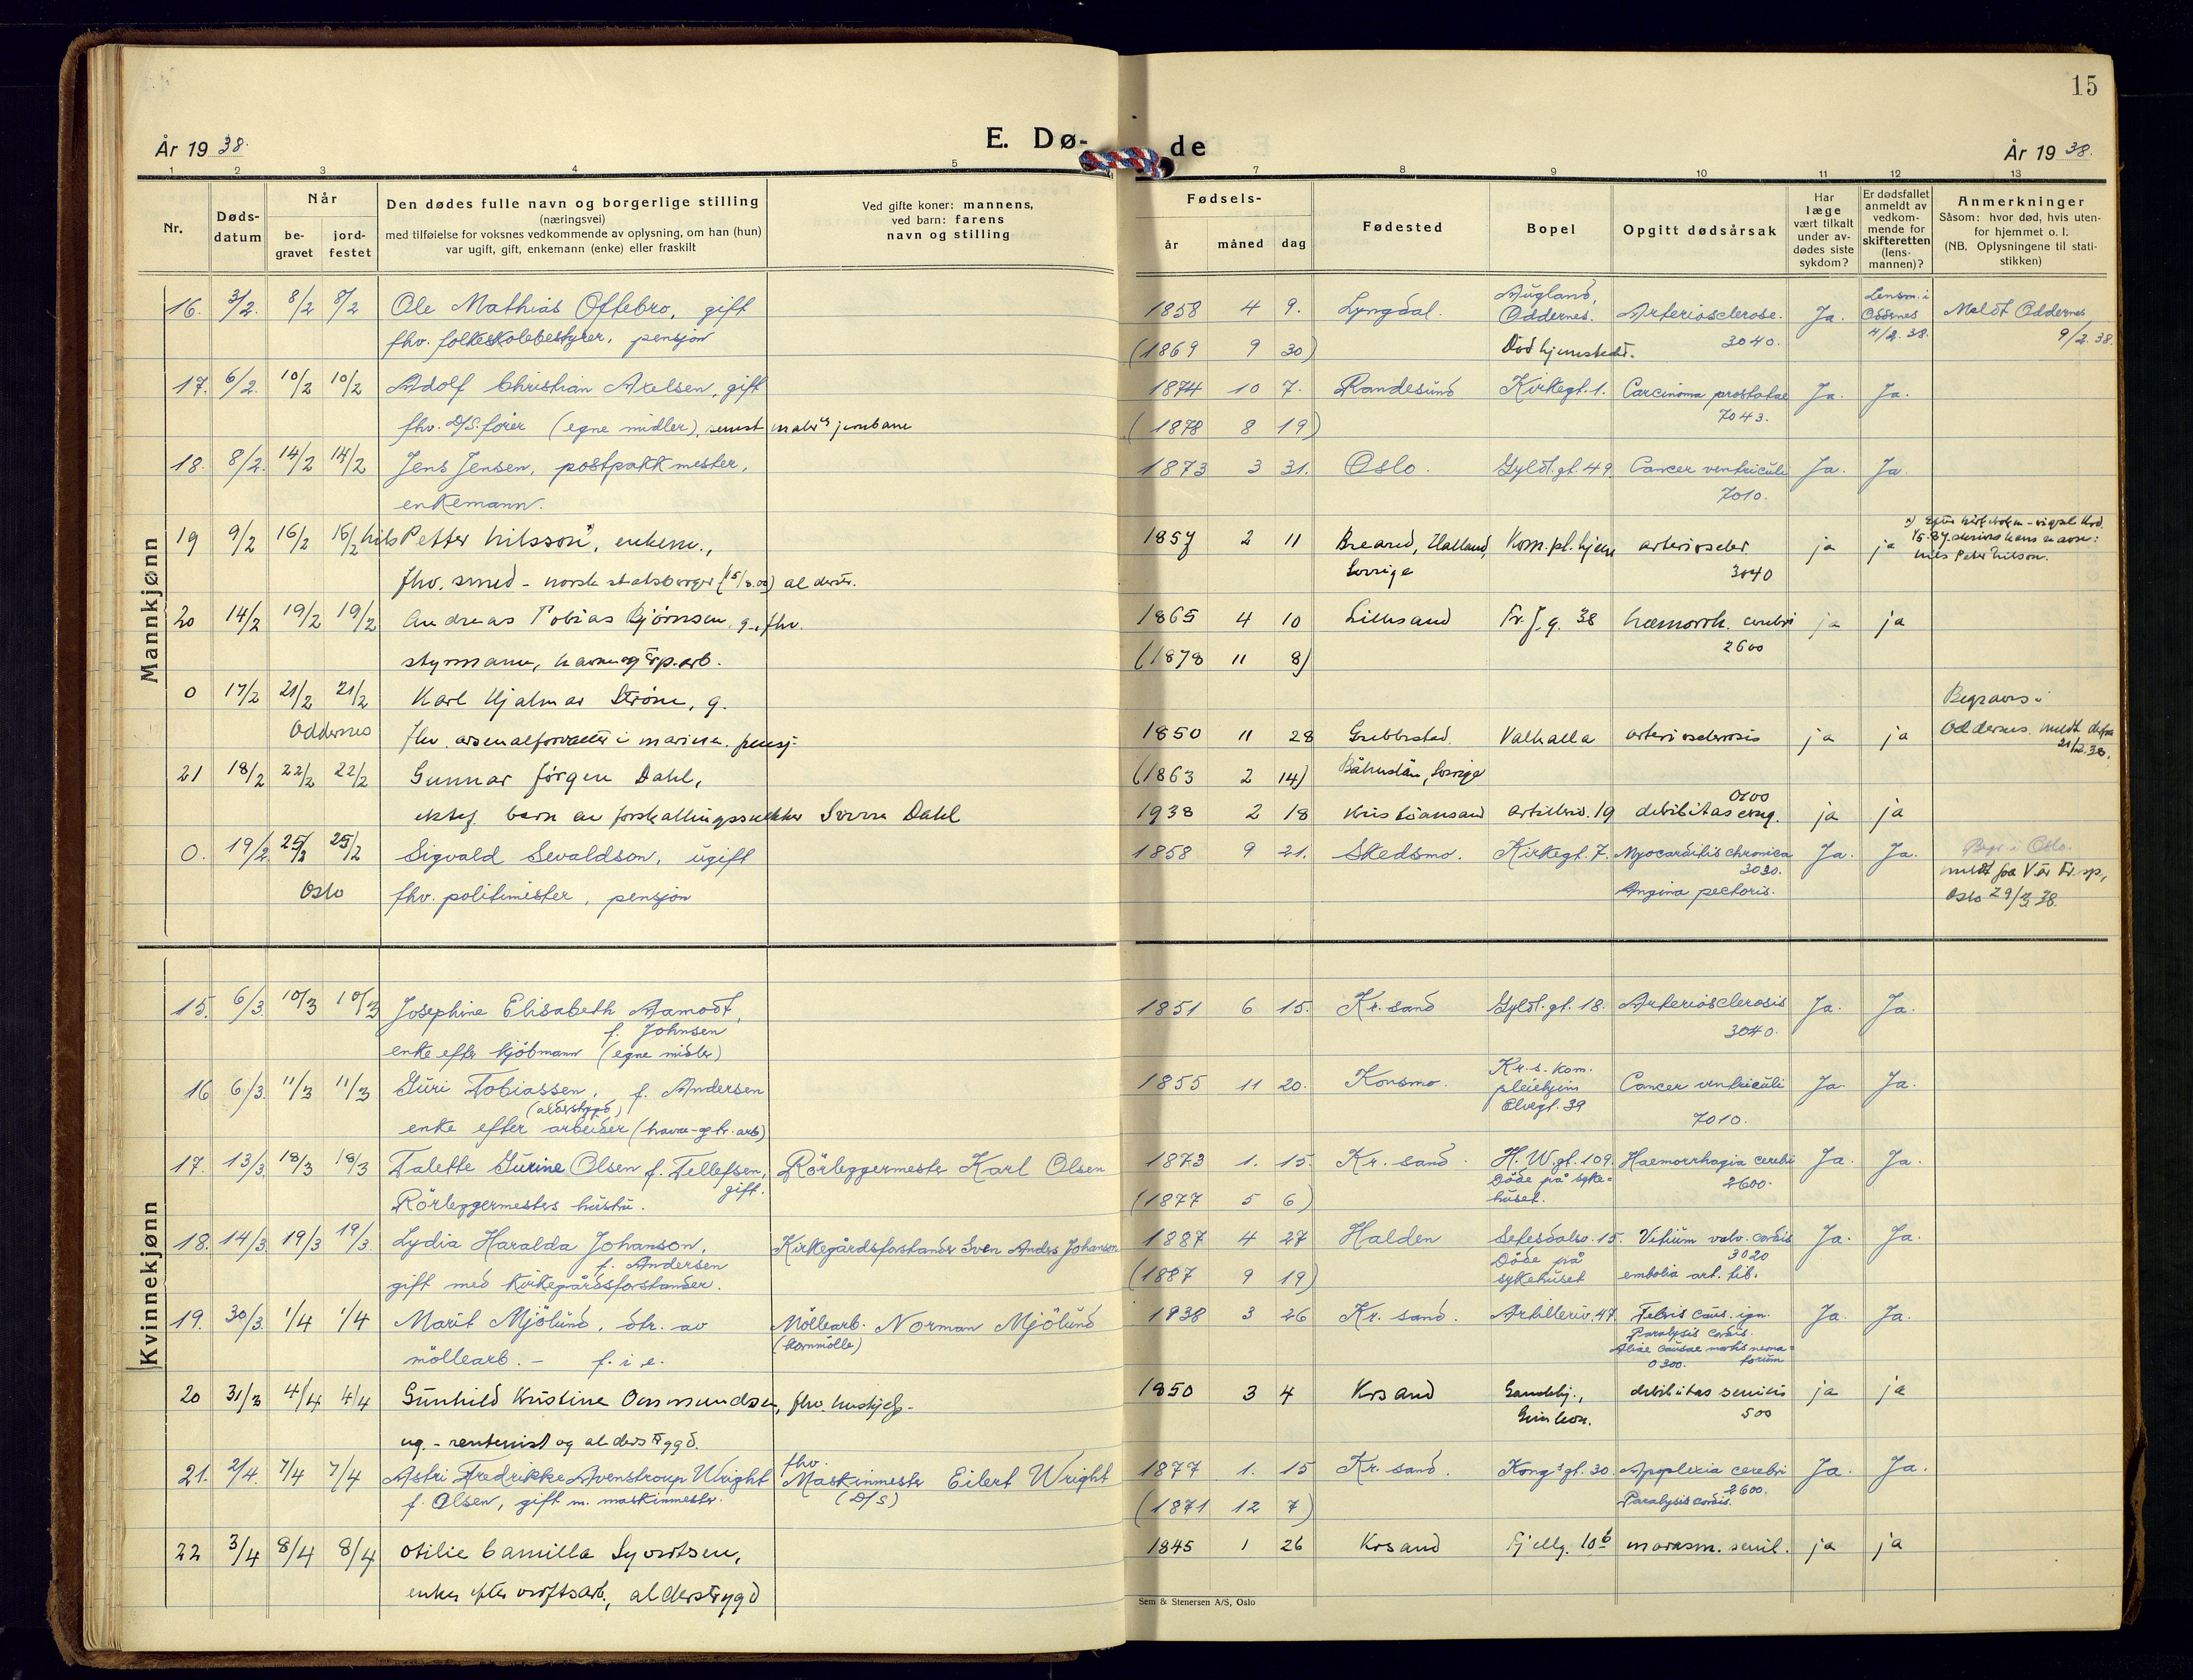 15
År 1938.
E. Dø-
de
År 1938.
1 2 3 4 5 7 8 9 10 11 12 13
Nr.
Døds-
datum
Når
be-
gravet
jord-
festet
Den dødes fulle navn og borgerlige stilling
(næringsvei)
med tilføielse for voksnes vedkommende av oplysning, om han (hun)
var ugift, gift, enkemann (enke) eller fraskilt
Ved gifte koner: mannens,
ved barn: farens
navn og stilling
Fødsels-
år måned dag
Fødested
Bopel
Opgitt dødsårsak
Har
læge
vært tilkalt
under av-
dødes siste
sykdom?
Er dødsfallet
anmeldt av
vedkom-
mende for
skifteretten
(lens-
mannen)?
Anmerkninger
Såsom: hvor død, hvis uten-
for hjemmet o. l.
(NB. Oplysningene til stati-
stikken)
Mannkjønn
16. 3/2. 8/2 8/2 Ole Mathias Oftebro, gift
fhv. folkeskolebestyrer, pensjon
1858 4 9. Lyngdal. Augland, Oddernes. Arteriosclerose. Ja. Lensm. i Oddernes 4/2.38. Meldt Oddernes 9/2.38.
(1869 9 30) Död hjemstedet. 3040.
17. 6/2. 10/2 10/2 Adolf Christian Axelsen, gift
fhv. D/S. förer (egne midler), senest
1874 10 7. Randesund Kirkegt. 1. Carcinoma prostatae Ja. Ja.
(1878 8 19) 7043.
18. 8/2. 14/2 14/2 Jens Jensen, postpakkmester,
enkemann.
1873 3 31. Oslo. Gyldl. gt. 49. Cancer ventriculi Ja. Ja.
7010.
19 9/2 16/2 16/2 Nils Petter Nilsson, enkem.,
fhv. smed - norsk statsborger alderstr.
1857 2 11 Breared, Halland, Kom. pl. hjem arterioscler. ja ja
Sverige 3040
Nils Peter Nilson.
20 14/2 19/2 19/2 Andreas Tobias Bjørnsen, g., fhv.
styrmann, havne og trp. arb.
1865 4 10 Lillesand Fr. f. g. 38 hæmorrh. cerebri ja ja
(1878 11 8) 2600
0 17/2 21/2 21/2 Karl Hjalmar Strøm, g.
Oddernes fhv. arsenalforvalter i marinen. pensj.
Begraves i
1850 11 28 Grebbestad, Valhalla arteriosclerosis ja ja Oddernes, meldt 21/2.38.
(1863 2 14) Båhuslän, Sverige
21 18/2 22/2 22/2 Gunnar Jørgen Dahl,
ektef. barn av forskallingssnekker Sverre Dahl
1938 2 18 Kristiansand Artilleriv. 19 debilitas cong. ja ja
0. 19/2. 25/2 25/2 Sigvald Sevaldson, ugift
Oslo fhv. politimester, pensjon
1858 9 21. Skedsmo. Kirkegt. 7. Myocarditis chronica Ja. Ja. Begr. i Oslo.
3030. meldt fra Vår Fr. sp,
Angina pectoris. Oslo 29/3 38.
Kvinnekjønn
15. 6/3. 10/3 10/3 Josephine Elisabeth Aamodt,
f. Johnsen
enke efter kjöbmann (egne midler)
1851 6 15. Kr. sand Gyldl. gt. 18. Arteriosclerosis Ja. Ja.
3040.
16 6/3. 11/3 11/3 Guri Tobiassen, f. Andersen
(alderstrygd)
enke efter arbeider (havne- og tr. arb)
1855 11 20. Konsmo. Kr.s. kom. pleiehjem Elvegt. 39 Cancer ventriculi Ja. Ja.
7010.
17. 13/3. 18/3 18/3 Talette Gurine Olsen f. Tellefsen, gift. Rörleggermester Karl Olsen
Rörleggermesters hustru.
1873 1. 15. Kr. sand. H. W. gt. 109. Haemorrhagia cerebri Ja. Ja.
(1877 5 6) Döde på sykehuset. 2600.
18. 14/3. 19/3 19/3 Lydia Haralda Johanson, Kirkegårdsforstander Sven Anders Johanson
f. Andersen
gift med kirkegårdsforstander.
1887 4 27 Halden Setesdalsv. 15. Vitium valv. cordis Ja. Ja.
(1887 9 19) Döde på sykehuset 3020 embolia art. tib.
19. 30/3. 1/4 1/4 Marit Mjölund, dtr. av Möllearb. Norman Mjölund
möllearb. - f. i e. (kornmölle)
1938 3 26 Kr. sand. Artilleriv. 47. Febris caus. ign. Ja. Ja.
Paralysis cordis.
0300.
20 31/3 4/4 4/4 Gunhild Kristine Ommundsen, fhv. hushjelp.
ug. - rentenist og alderstrygd.
1850 3 4 Krsand Gamlehj., Grimleon. debilitas senilis ja ja
500
21. 2/4. 7/4 7/4 Astri Fredrikke Avenstroup Wright fhv. Maskinmester Eilert Wright
f. Olsen, gift m. maskinmester. (D/S)
1877 1. 15 Kr. sand. Kongs gt. 30. Apoplexia cerebri Ja. Ja.
(1871 12 7) 2600. Paralysis cordis.
22 3/4 8/4 8/4 Otilie Camilla Syvertsen,
enke efter verftsarb., alderstrygd
1845 1 26 Krsand Fjellg. 10 b marasm. senil. ja ja
Sem & Stenersen A/S, Oslo